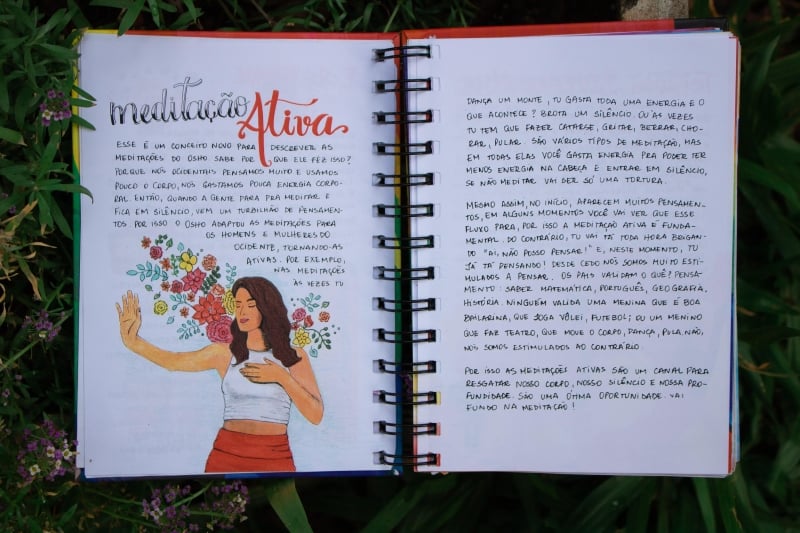 meditação
Ativa
ESSE É UM CONCEITO NOVO PARA DESCREVER AS
MEDITAÇÕES DO OSHO SABE POR QUE ELE FEZ ISSO?
PORQUE NÓS OCIDENTAIS PENSAMOS MUITO E USAMOS
POUCO O CORPO, NÓS GASTAMOS POUCA ENERGIA CORPO-
RAL. ENTÃO, QUANDO A GENTE PARA PRA MEDITAR E
FICA EM SILÊNCIO, VEM UM TURBILHÃO DE PENSAMEN-
TOS POR ISSO O OSHO ADAPTOU AS MEDITAÇÕES PARA
OS HOMENS E MULHERES DO
OCIDENTE, TORNANDO-AS
ATIVAS. POR EXEMPLO,
NAS MEDITAÇÕES
ÀS VEZES TU
DANÇA UM MONTE, TU GASTA TODA UMA ENERGIA E O
QUE ACONTECE? BROTA UM SILÊNCIO. OU ÀS VEZES
TU TEM QUE FAZER CATARSE, GRITAR, BERRAR, CHO-
RAR, PULAR. SÃO VÁRIOS TIPOS DE MEDITAÇÃO, MAS
EM TODAS ELAS VOCÊ GASTA ENERGIA PRA PODER TER
MENOS ENERGIA NA CABEÇA E ENTRAR EM SILÊNCIO,
SE NÃO MEDITAR VAI SER SÓ UMA TORTURA.
MESMO ASSIM, NO INÍCIO, APARECEM MUITOS PENSAMEN-
TOS, EM ALGUNS MOMENTOS VOCÊ VAI VER QUE ESSE
FLUXO PARA, POR ISSO A MEDITAÇÃO ATIVA É FUNDA-
MENTAL. DO CONTRÁRIO, TU VAI TÁ TODA HORA BRIGAN-
DO "AI, NÃO POSSO PENSAR!" E, NESTE MOMENTO, TU
JÁ TÁ PENSANDO! DESDE CEDO NÓS SOMOS MUITO ESTI-
MULADOS A PENSAR. OS PAIS VALIDAM O QUÊ? PENSA-
MENTO: SABER MATEMÁTICA, PORTUGUÊS, GEOGRAFIA,
HISTÓRIA. NINGUÉM VALIDA UMA MENINA QUE É BOA
BAILARINA, QUE JOGA VÔLEI, FUTEBOL; OU UM MENINO
QUE FAZ TEATRO, QUE MOVE O CORPO, DANÇA, PULA. NÃO,
NÓS SOMOS ESTIMULADOS AO CONTRÁRIO.
POR ISSO AS MEDITAÇÕES ATIVAS SÃO UM CANAL PARA
RESGATAR NOSSO CORPO, NOSSO SILÊNCIO E NOSSA PRO-
FUNDIDADE. SÃO UMA ÓTIMA OPORTUNIDADE. VAI
FUNDO NA MEDITAÇÃO!